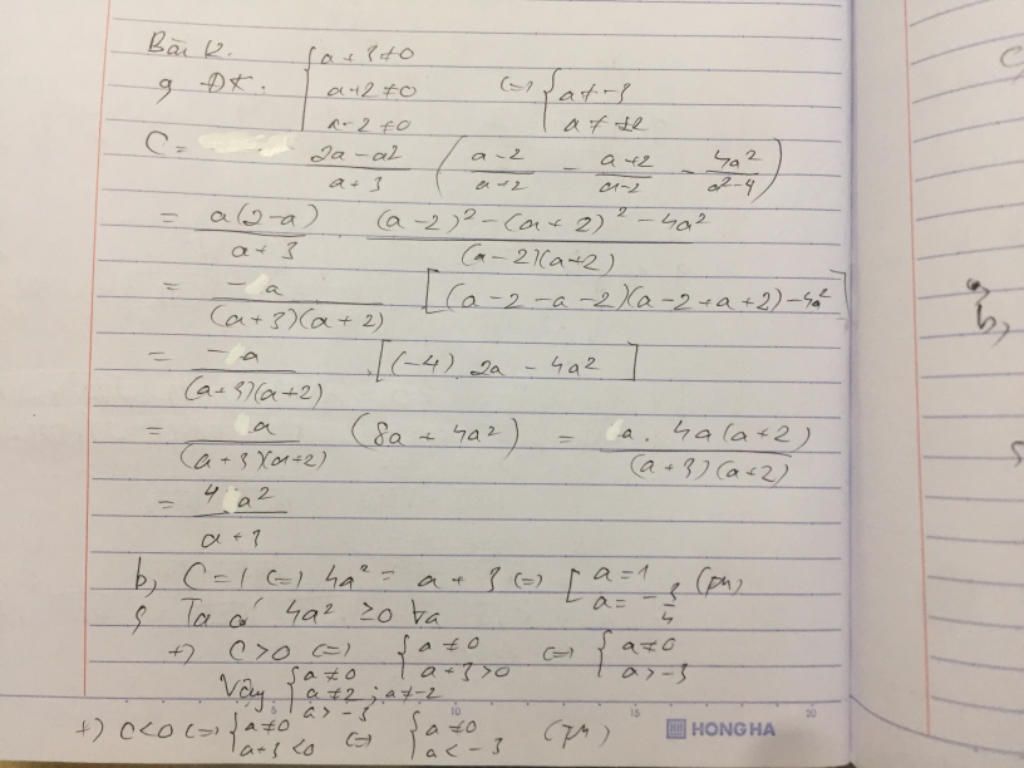 Bài 12.
a, ĐK: { a + 3 ≠ 0
a + 2 ≠ 0
a - 2 ≠ 0 <=> { a ≠ -3
a ≠ ±2
C = (2a - a²)/(a + 3) ( (a - 2)/(a + 2) - (a + 2)/(a - 2) - 4a²/(a² - 4) )
= a(2 - a)/(a + 3) . ((a - 2)² - (a + 2)² - 4a²)/((a - 2)(a + 2))
= -a/((a + 3)(a + 2)) [(a - 2 - a - 2)(a - 2 + a + 2) - 4a²]
= -a/((a + 3)(a + 2)) . [(-4) 2a - 4a²]
= a/((a + 3)(a + 2)) (8a + 4a²) = a. 4a(a + 2)/((a + 3)(a + 2))
= 4a²/(a + 3)
b, C = 1 <=> 4a² = a + 3 <=> [ a = 1
a = -3/4 (tm)
c, Ta có 4a² ≥ 0 ∀a
+) C > 0 <=> { a ≠ 0
a + 3 > 0 <=> { a ≠ 0
a > -3
Vậy { a ≠ 0
a ≠ 2 ; a ≠ -2
a > -3
+) C < 0 <=> { a ≠ 0
a + 3 < 0 <=> { a ≠ 0
a < -3 (tm)
5 10 15 20
HONG HA
b,